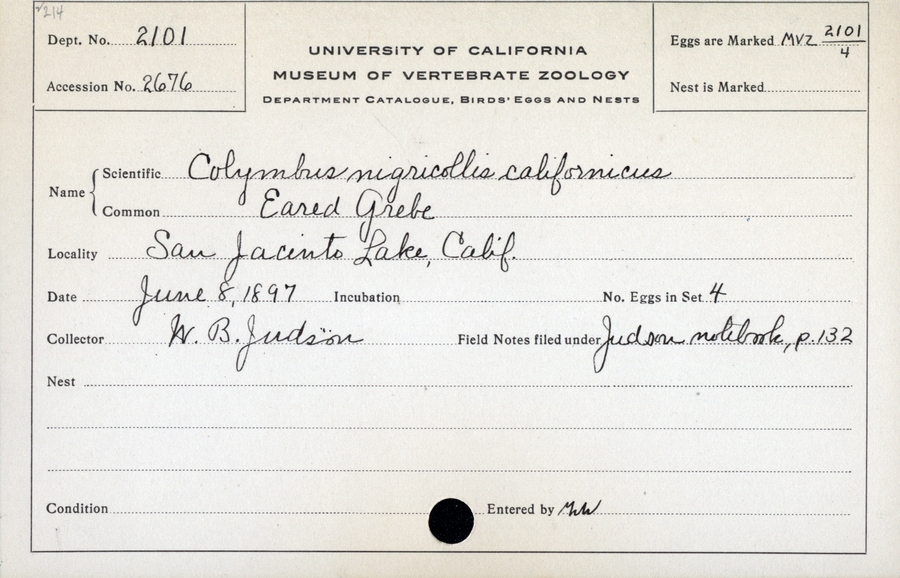 214
Dept. No. 2101
Accession No. 2676
UNIVERSITY OF CALIFORNIA
MUSEUM OF VERTEBRATE ZOOLOGY
DEPARTMENT CATALOGUE, BIRDS' EGGS AND NESTS
Eggs are Marked MVZ 2101/4
Nest is Marked
Name { Scientific Colymbus nigricollis californicus
Common Eared Grebe
Locality San Jacinto Lake, Calif.
Date June 8, 1897 Incubation No. Eggs in Set 4
Collector W. B. Judson Field Notes filed under Judson notebook, p. 132
Nest
Condition Entered by